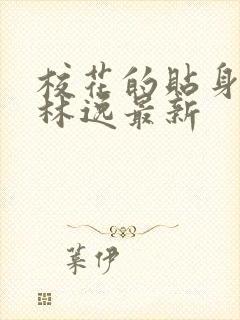 校花的贴身
林逸最新
叶伊